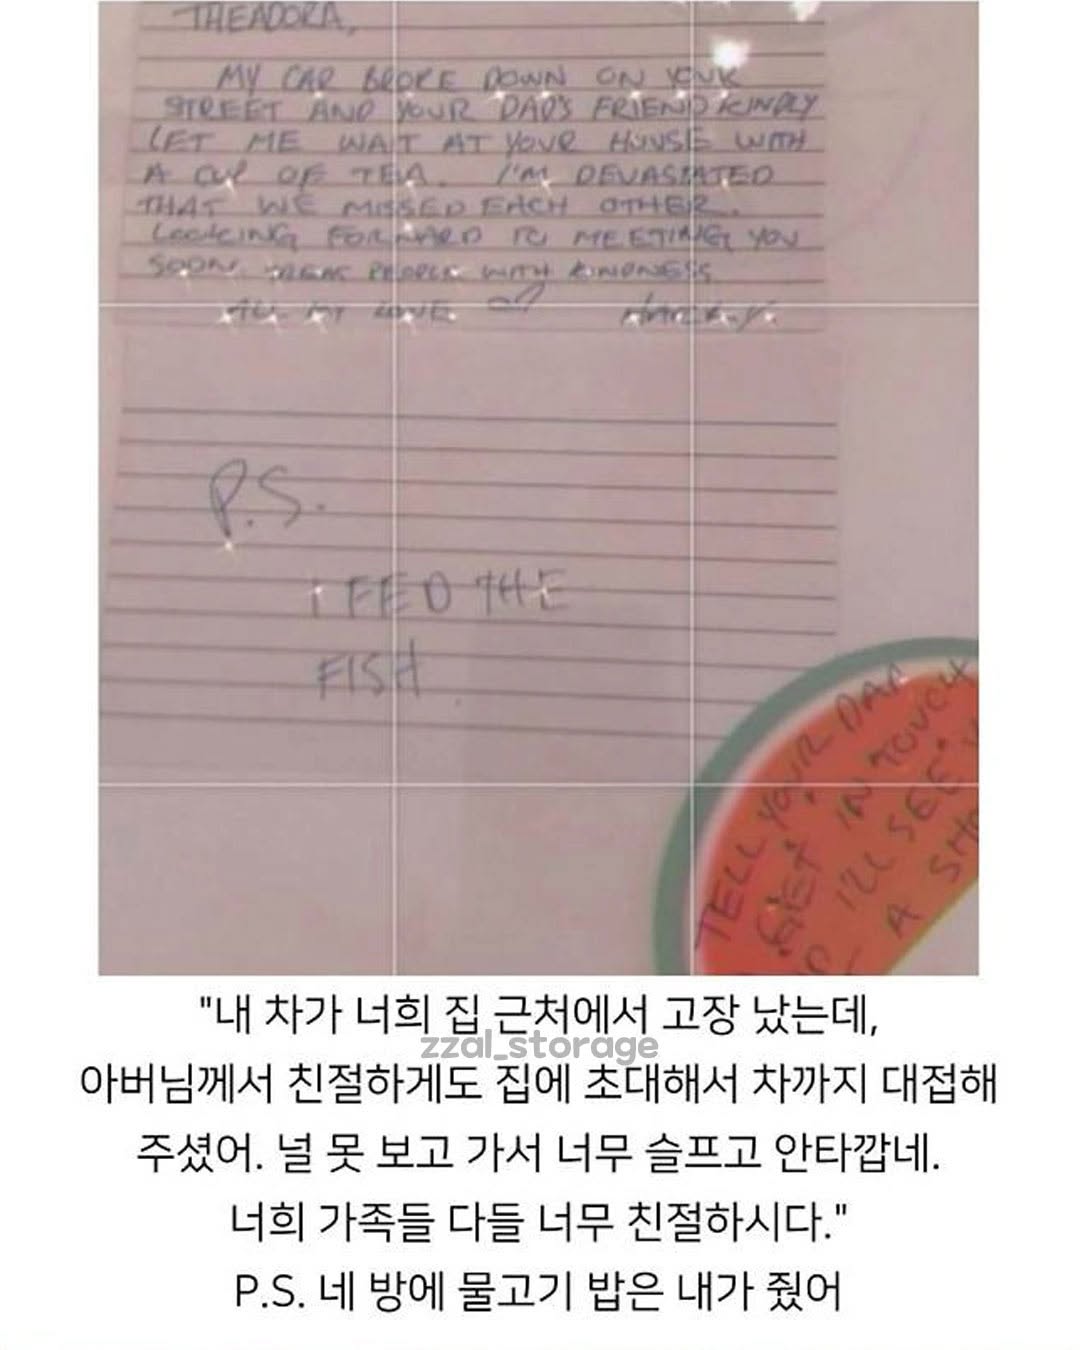 THEADORA,
MY CAR BROKE DOWN ON YOUR
STREET AND YOUR DAD'S FRIEND KINDLY
LET ME WAIT AT YOUR HOUSE WITH
A CUP OF TEA. I'M DEVASTATED
THAT WE MISSED EACH OTHER.
LOOKING FORWARD TO MEETING YOU
SOON. TREAT PEOPLE WITH KINDNESS
ALL MY LOVE HARRY.
P.S.
I FED THE
FISH.
TELL YOUR DAD
GET IN TOUCH
I'LL SEE
A SHO
"내 차가 너희 집 근처에서 고장 났는데,
zzal_storage
아버님께서 친절하게도 집에 초대해서 차까지 대접해
주셨어. 널 못 보고 가서 너무 슬프고 안타깝네.
너희 가족들 다들 너무 친절하시다."
P.S. 네 방에 물고기 밥은 내가 줬어